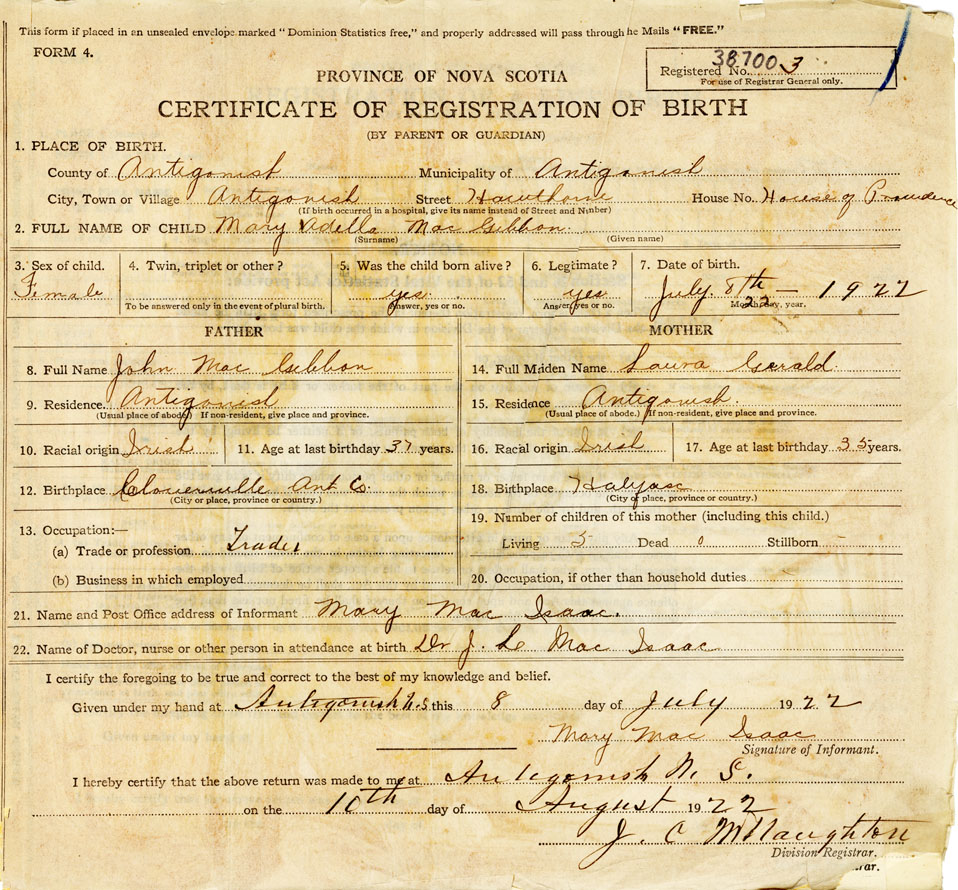 This form if placed in an unsealed envelope marked "Dominion Statistics free," and properly addressed will pass through he Mails "FREE."
FORM 4.
38700 3
Registered No.
For use of Registrar General only.
PROVINCE OF NOVA SCOTIA
CERTIFICATE OF REGISTRATION OF BIRTH
(BY PARENT OR GUARDIAN)
1. PLACE OF BIRTH.
County of Antigonish Municipality of Antigonish
City, Town or Village Antigonish Street Hawthorne House No. House of Providence
(If birth occurred in a hospital, give its name instead of Street and Number)
2. FULL NAME OF CHILD Mary Adella Mac Gibbon.
(Surname) (Given name)
3. Sex of child. 4. Twin, triplet or other? 5. Was the child born alive? 6. Legitimate? 7. Date of birth.
Female yes yes July 8th 22 — 1922
To be answered only in the event of plural birth. Answer, yes or no. Answer, yes or no. Month, day, year.
FATHER MOTHER
8. Full Name John Mac Gibbon 14. Full Maiden Name Laura Gerald
9. Residence Antigonish 15. Residence Antigonish.
(Usual place of abode.) If non-resident, give place and province. (Usual place of abode.) If non-resident, give place and province.
10. Racial origin Irish 11. Age at last birthday 37 years. 16. Racial origin Irish 17. Age at last birthday 35 years.
12. Birthplace Cloverville Ant Co. 18. Birthplace
(City or place, province or country.) (City or place, province or country.)
13. Occupation:— 19. Number of children of this mother (including this child.)
(a) Trade or profession Trader Living 5 Dead 0 Stillborn -
(b) Business in which employed 20. Occupation, if other than household duties
21. Name and Post Office address of Informant Mary Mac Isaac.
22. Name of Doctor, nurse or other person in attendance at birth Dr J. Mac Isaac
I certify the foregoing to be true and correct to the best of my knowledge and belief.
Given under my hand at Antigonish N.S this 8 day of July 1922
Mary Mac Isaac
Signature of Informant.
I hereby certify that the above return was made to me at Antigonish N. S.
on the 10th day of August 1922
J. C McNaughton
Division Registrar.
rar.